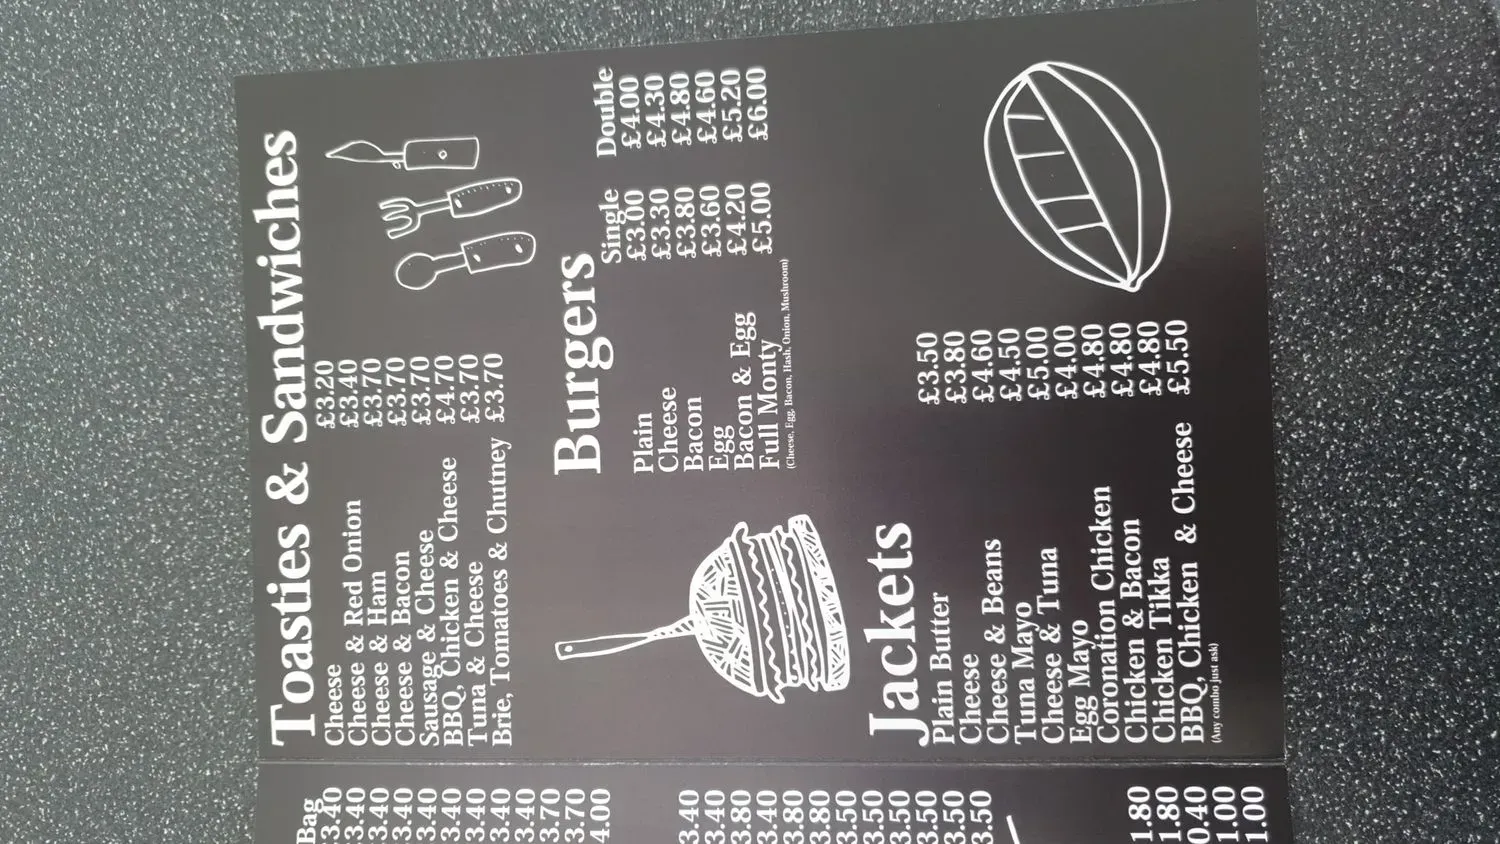 Toasties & Sandwiches
Cheese £3.20
Cheese & Red Onion £3.40
Cheese & Ham £3.70
Cheese & Bacon £3.70
Sausage & Cheese £3.70
BBQ, Chicken & Cheese £4.70
Tuna & Cheese £3.70
Brie, Tomatoes & Chutney £3.70
Burgers
Single Double
Plain £3.00 £4.00
Cheese £3.30 £4.30
Bacon £3.80 £4.80
Egg £3.60 £4.60
Bacon & Egg £4.20 £5.20
Full Monty £5.00 £6.00
(Cheese, Egg, Bacon, Hash, Onion, Mushroom)
Jackets
Plain Butter £3.50
Cheese £3.80
Cheese & Beans £4.60
Tuna Mayo £4.50
Cheese & Tuna £5.00
Egg Mayo £4.00
Coronation Chicken £4.80
Chicken & Bacon £4.80
Chicken Tikka £4.80
BBQ, Chicken & Cheese £5.50
(Any combo just ask)
Bag
£3.40
3.40
3.40
3.40
3.40
3.40
3.40
3.40
3.40
3.70
3.70
4.00
3.40
3.40
3.80
3.40
3.80
3.80
3.50
3.50
3.50
3.50
3.50
3.50
1.80
1.80
0.40
1.00
1.00